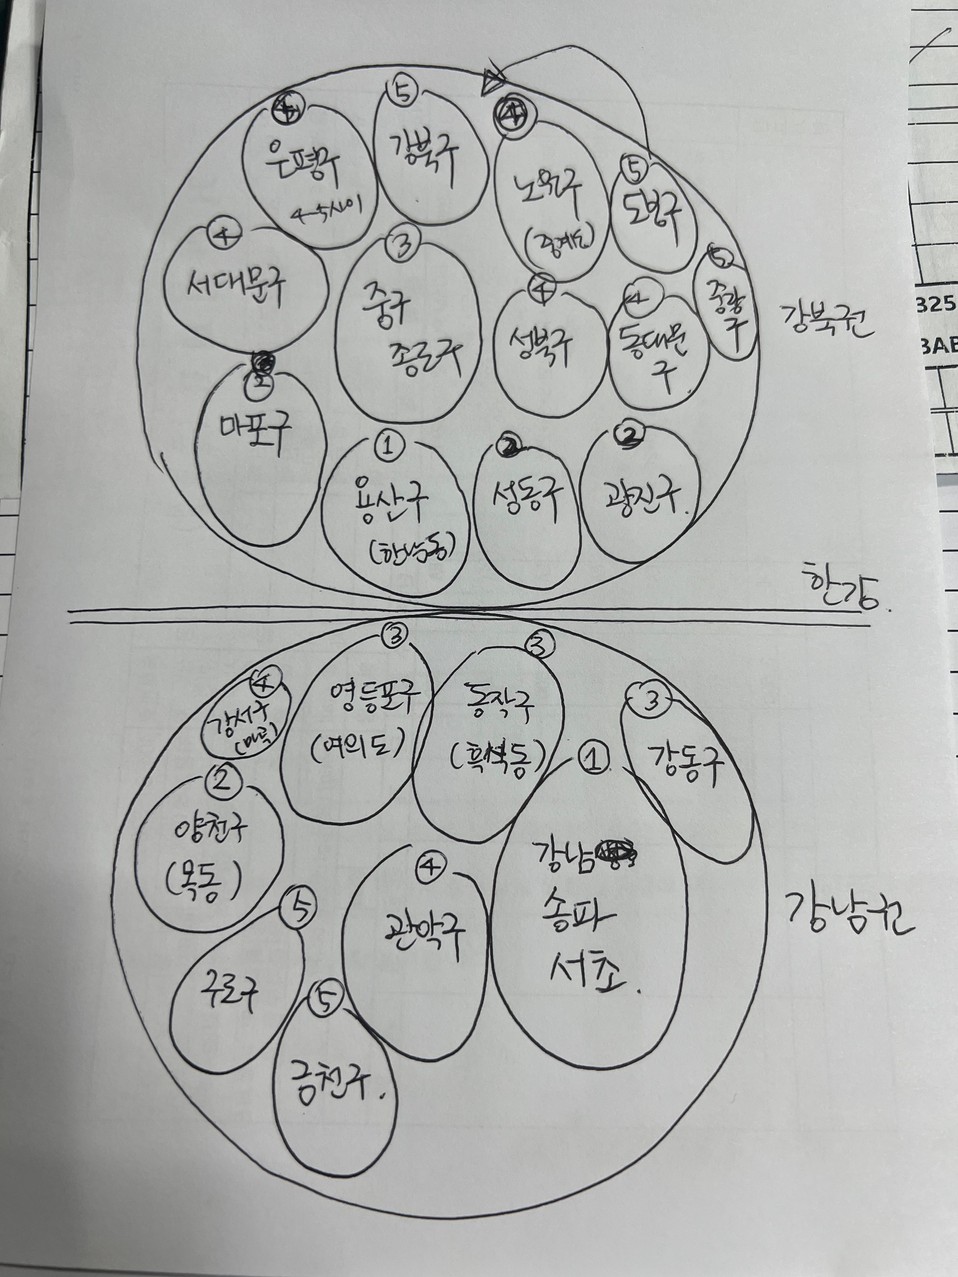 ⑤
강북구
④
은평구
4~5사이
④
노원구
(중계동)
⑤
도봉구
④
서대문구
③
중구
종로구
④
성북구
④
동대문
구
⑤
중랑
구
강북권
②
마포구
①
용산구
(한남동)
②
성동구
②
광진구.
한강.
③
영등포구
(여의도)
③
동작구
(흑석동)
④
강서구
(마곡)
②
양천구
(목동)
①
강남
송파
서초.
③
강동구
강남권
④
관악구
⑤
구로구
⑤
금천구.
325
3AE